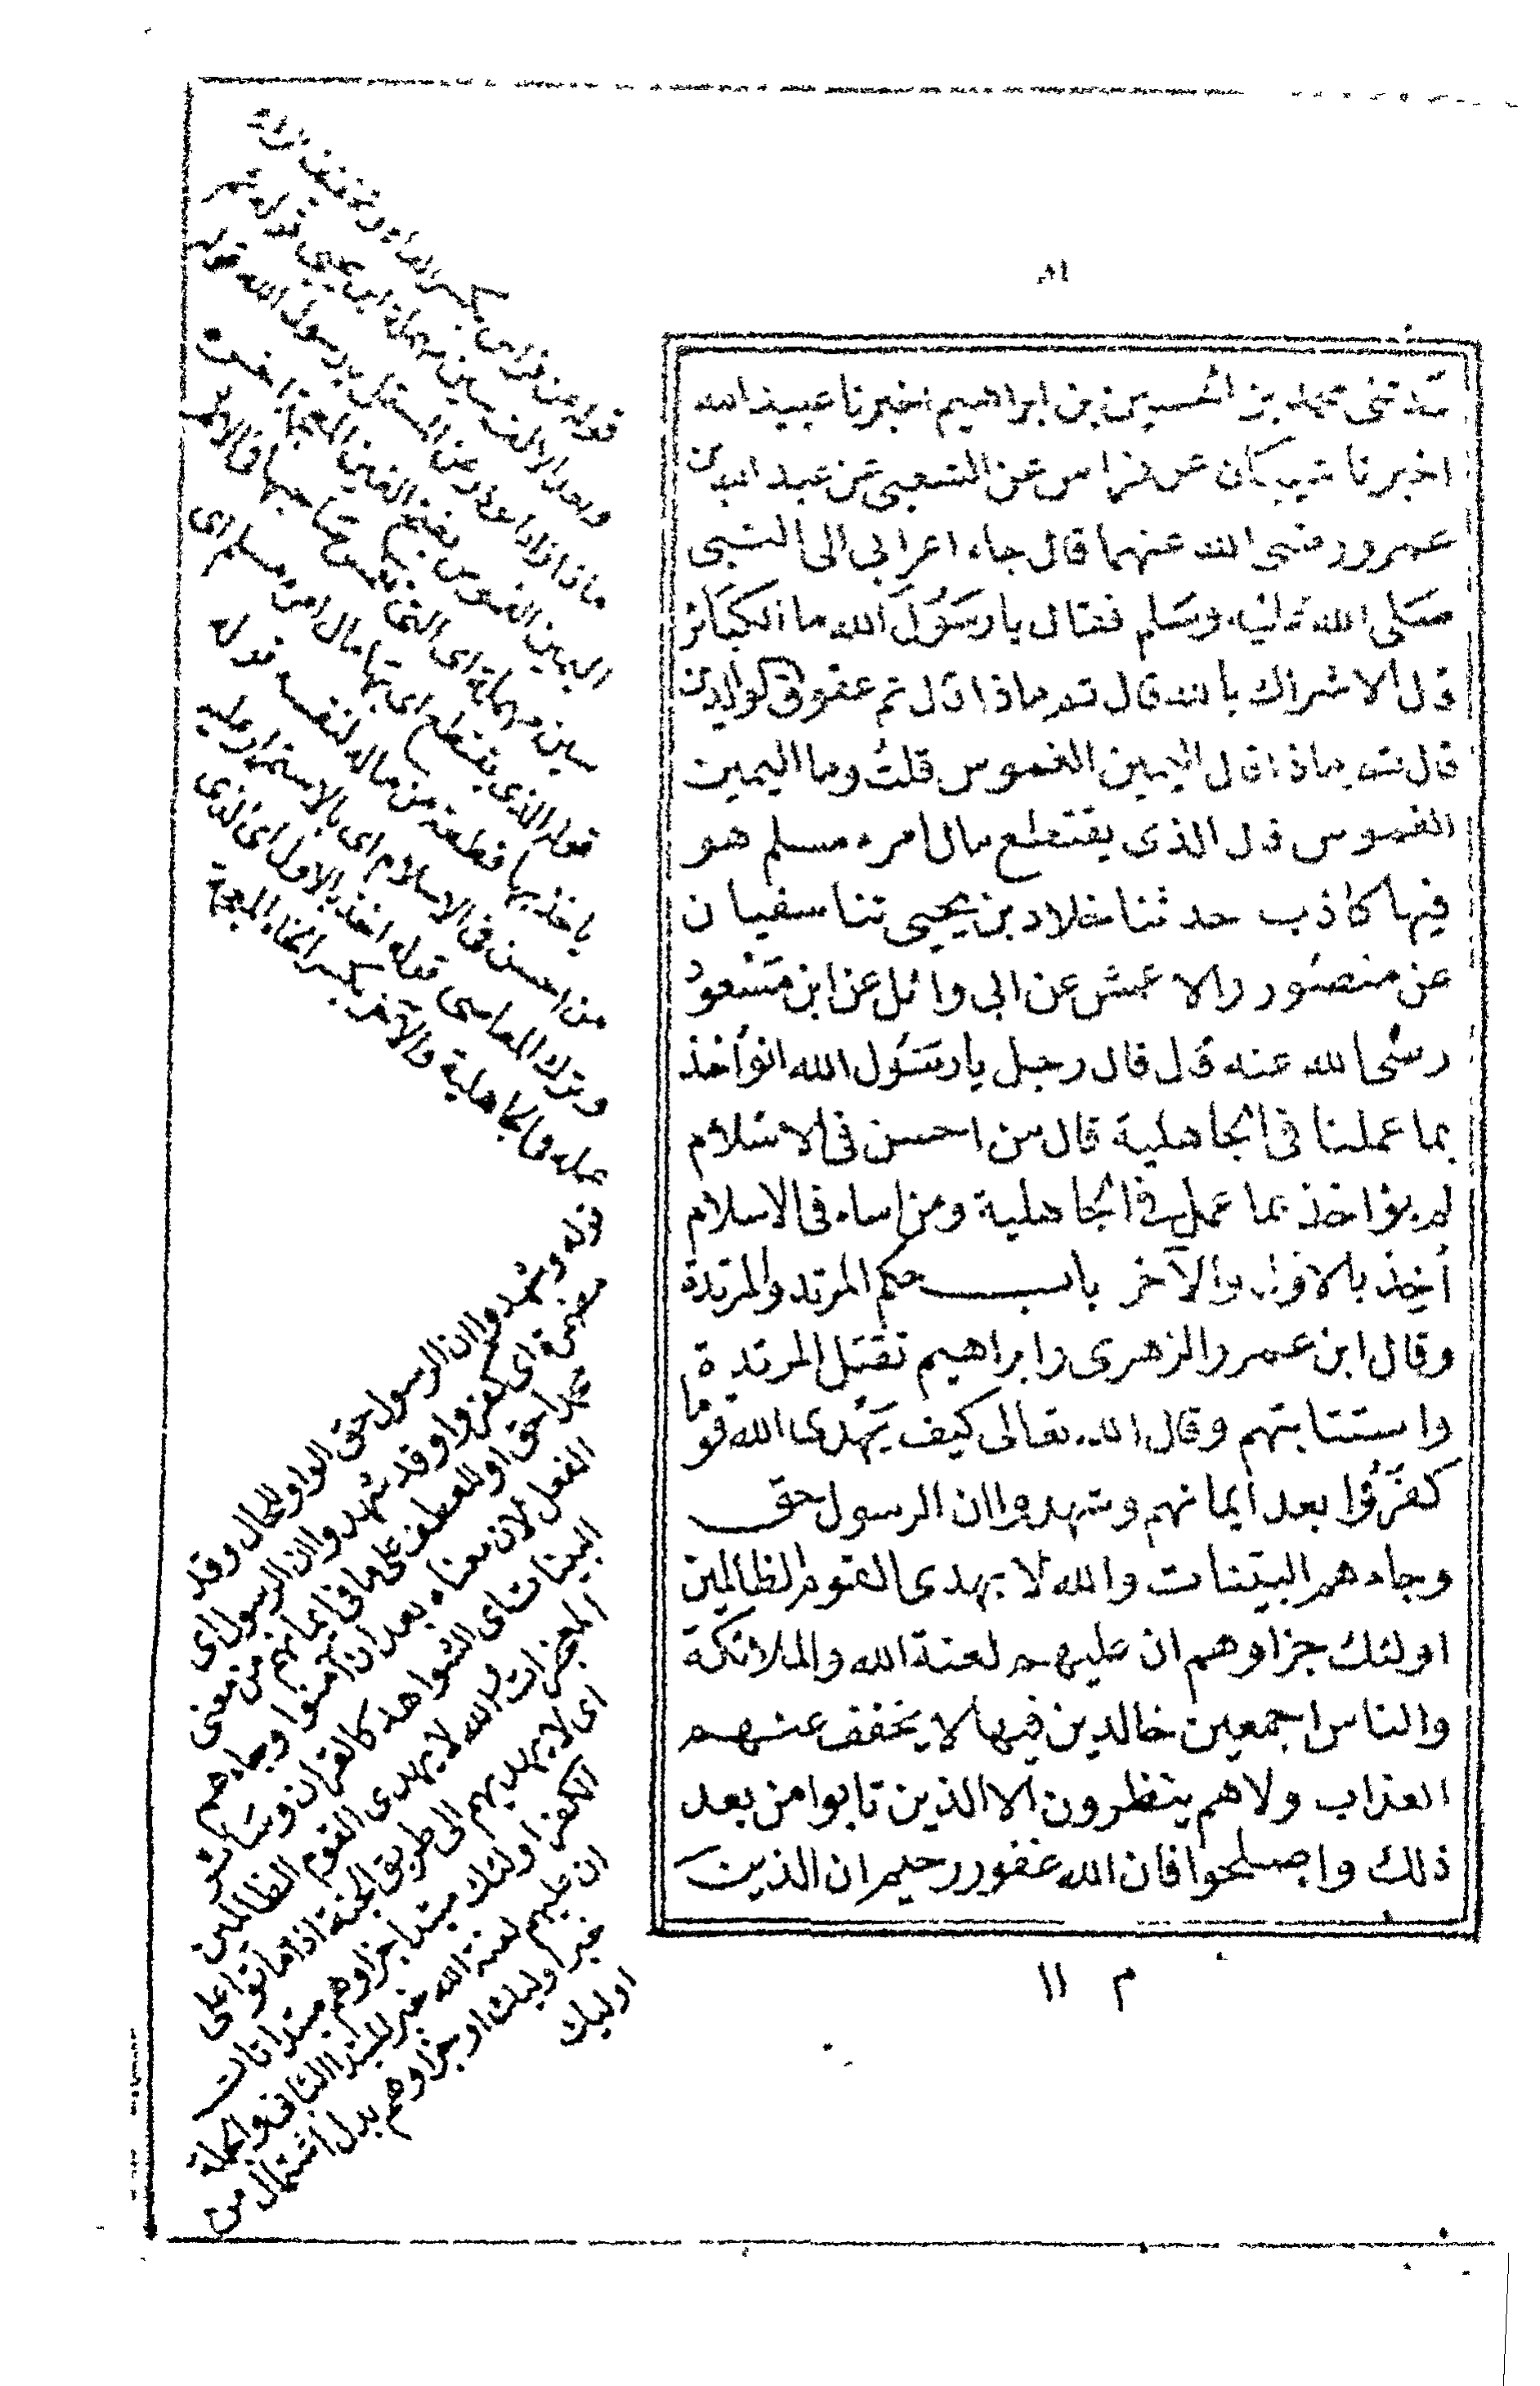 ٨١
حدثنى محمد بن الحسين بن ابراهيم اخبرنا عبيد الله
اخبرنا شيبان عن فراس عن الشعبى عن عبد الله بن
عمرو رضى الله عنهما قال جاء اعرابى الى النبى
صلى الله عليه وسلم فقال يا رسول الله ما الكبائر
قال الاشراك بالله قال ثم ماذا قال ثم عقوق الوالدين
قال ثم ماذا قال اليمين الغموس قلت وما اليمين
الغموس قال الذى يقتطع مال امرء مسلم هو
فيها كاذب حدثنا خلاد بن يحيى ثنا سفيان
عن منصور والاعمش عن ابى وائل عن ابن مسعود
رضى الله عنه قال قال رجل يا رسول الله انؤاخذ
بما عملنا فى الجاهلية قال من احسن فى الاسلام
لم يؤاخذ بما عمل فى الجاهلية ومن اساء فى الاسلام
أخذ بالاول والآخر باب حكم المرتد والمرتدة
وقال ابن عمر والزهرى وابراهيم تقتل المرتدة
واستتابتهم وقال الله تعالى كيف يهدى الله قوما
كفروا بعد ايمانهم وشهدوا ان الرسول حق
وجاءهم البينات والله لا يهدى القوم الظالمين
اولئك جزاوهم ان عليهم لعنة الله والملائكة
والناس اجمعين خالدين فيها لا يخفف عنهم
العذاب ولا هم ينظرون الا الذين تابوا من بعد
ذلك واصلحوا فان الله غفور رحيم ان الذين
م ١١
اليمين الغموس بفتح الغين المعجمة
قوله الذى يقتطع اى بها مال امرء مسلم اى
ياخذ بها قطعة من ماله لنفسه قوله
من احسن فى الاسلام اى بالاستمرار عليه
وترك المعاصى قوله اخذ بالاول اى الذى
عمله فى الجاهلية والآخر بكسر الخاء المعجمة
قوله وشهدوا ان الرسول حق الواو للحال وقد
مضمرة اى كفروا وقد شهدوا ان الرسول اى
محمدا حق او للعطف على ما فى ايمانهم من معنى
الفعل لان معناه بعد ان آمنوا وجاءهم
البينات اى الشواهد كالقرآن وسائر
المعجزات والله لا يهدى القوم الظالمين
اى لا يهديهم الى طريق الجنة اذا ماتوا على
الكفر اولئك مبتدا جزاوهم مبتدا ثان
ان عليهم لعنة الله خبر المبتدا الثانى والجملة
خبر اوليك او جزاوهم بدل اشتمال من
اوليك